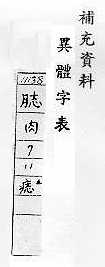 補充資料
異體字表
1138
肉
7
11
痣